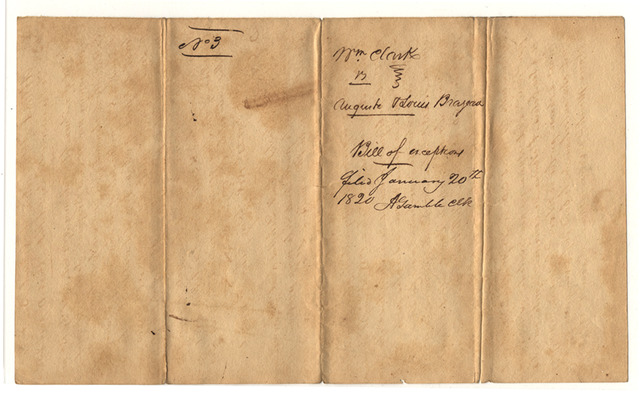 No 3
Wm Clark
vs
Auguste & Louis
Bill of exceptions
filed January 20th
1820 A Gamble Clk